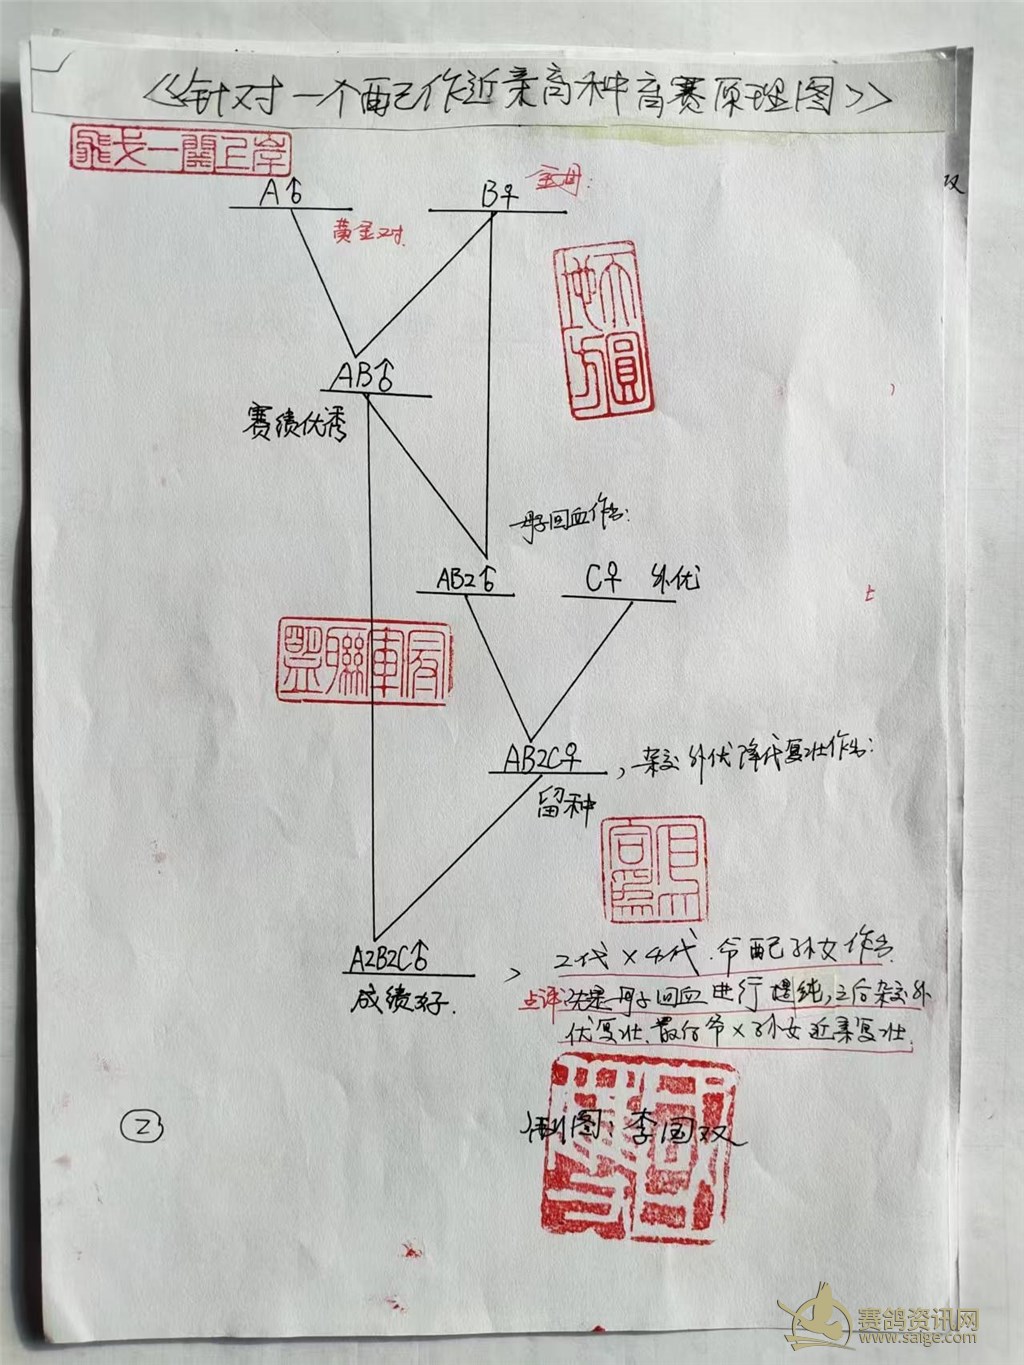 《针对一个配已作近亲育种育赛原理图》
飛戈一關上岸
A♂
B♀
主母:
黄金对
天圓地方
AB♂
赛绩优秀
母子回血作出:
AB2♂
C♀ 外优
盟聯軍友
AB2C♀, 杂交外优降代复壮作出:
留种
A2B2C♂
成绩好.
2代×4代.爷配孙女作出.
点评:先是母子回血进行提纯,之后杂交外
优复壮.最后爷×孙女近亲复壮.
制图:李国双
2
双
赛鸽资讯网
www.saige.com